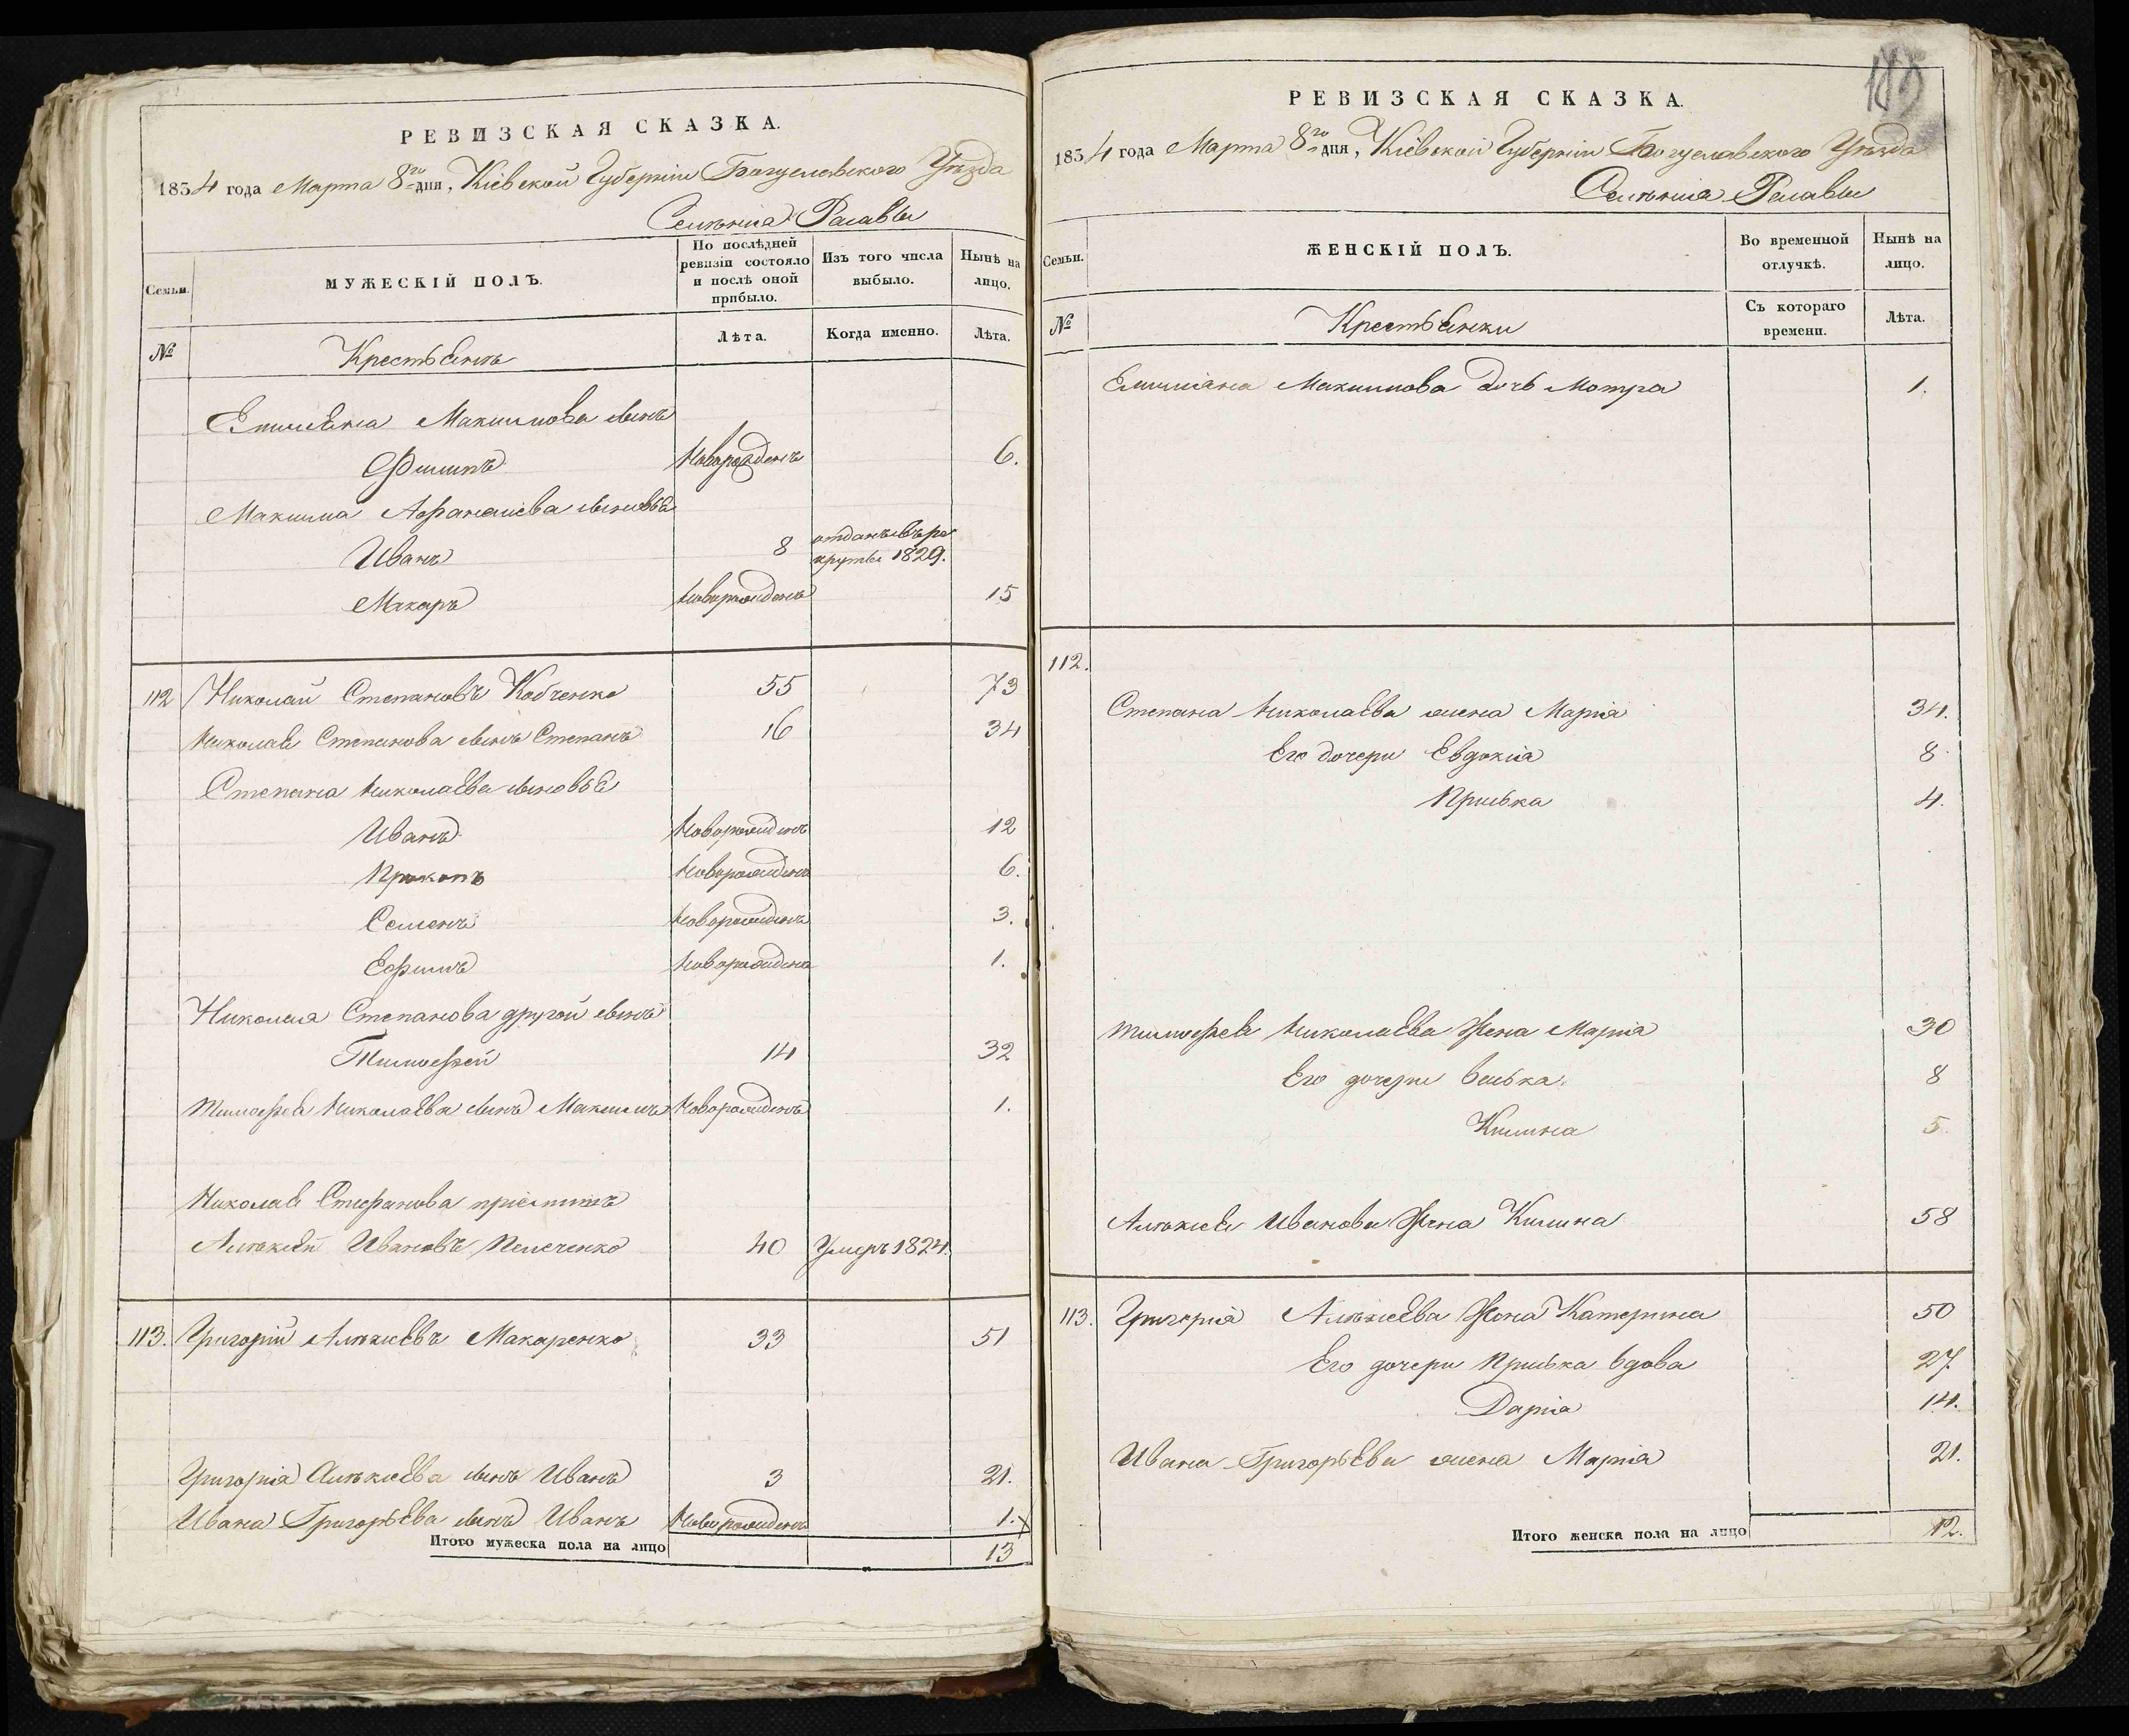 РЕВИЗСКАЯ СКАЗКА.
1834 года Марта 8го дня, Кіевской Губерніи Богуславского Уѣзда
Селѣнія Расавы
Семьи. МУЖЕСКІЙ ПОЛЪ. По послѣдней ревизіи состояло и послѣ оной прибыло. Изъ того числа выбыло. Нынѣ на лицо.
№ Крестьянъ Лѣта. Когда именно. Лѣта.
Емилiяна Максимова сынъ
Филипъ Новорожденъ 6.
Максима Афанасіева сыновья
Иванъ 8 отданъ въ ре
круты 1829.
Макаръ новорожденъ 15
112 Николай Степановъ Кобченко 55 73
Николая Степанова сынъ Степанъ 16 34
Степана Николаева сыновья
Иванъ новорожденъ 12
Прокопъ новорожденъ 6.
Семенъ новорожденъ 3.
Ефимъ новорожденъ 1.
Николая Степанова другой сынъ
Тимофей 14 32
Тимофея Николаева сынъ Максимъ новорожденъ 1.
Николая Стефанова пріемышъ
Алѣксѣй Ивановъ 40 Умеръ 1824.
113. Григорій Алѣксѣевъ Макаренко 33 51
Григорія Алѣксѣева сынъ Иванъ 3 21.
Ивана Григорьева сынъ Иванъ Новорожденъ 1.
Итого мужеска пола на лицо 13
РЕВИЗСКАЯ СКАЗКА.
1834 года Марта 8го дня, Кіевской Губерніи Богуславского Уѣзда
Селѣнія Расавы
Семьи. ЖЕНСКІЙ ПОЛЪ. Во временной отлучкѣ. Нынѣ на лицо.
№ Крестьянки Съ котораго времени. Лѣта.
Емиліяна Максимова дочь Мотра 1.
112.
Степана Николаева жена Марія 34.
Его дочери Евдокія 8
Приська 4.
Тимофея Николаева жена Марія 30
Его дочери Васька 8
Килина 5
Алѣксѣя Иванова жена Килина 58
113. Григорія Алѣксѣева жена Катерина 50
Его дочери Приська вдова 27
Дарія 14.
Ивана Григорьева жена Марія 21.
Итого женска пола на лицо 12.